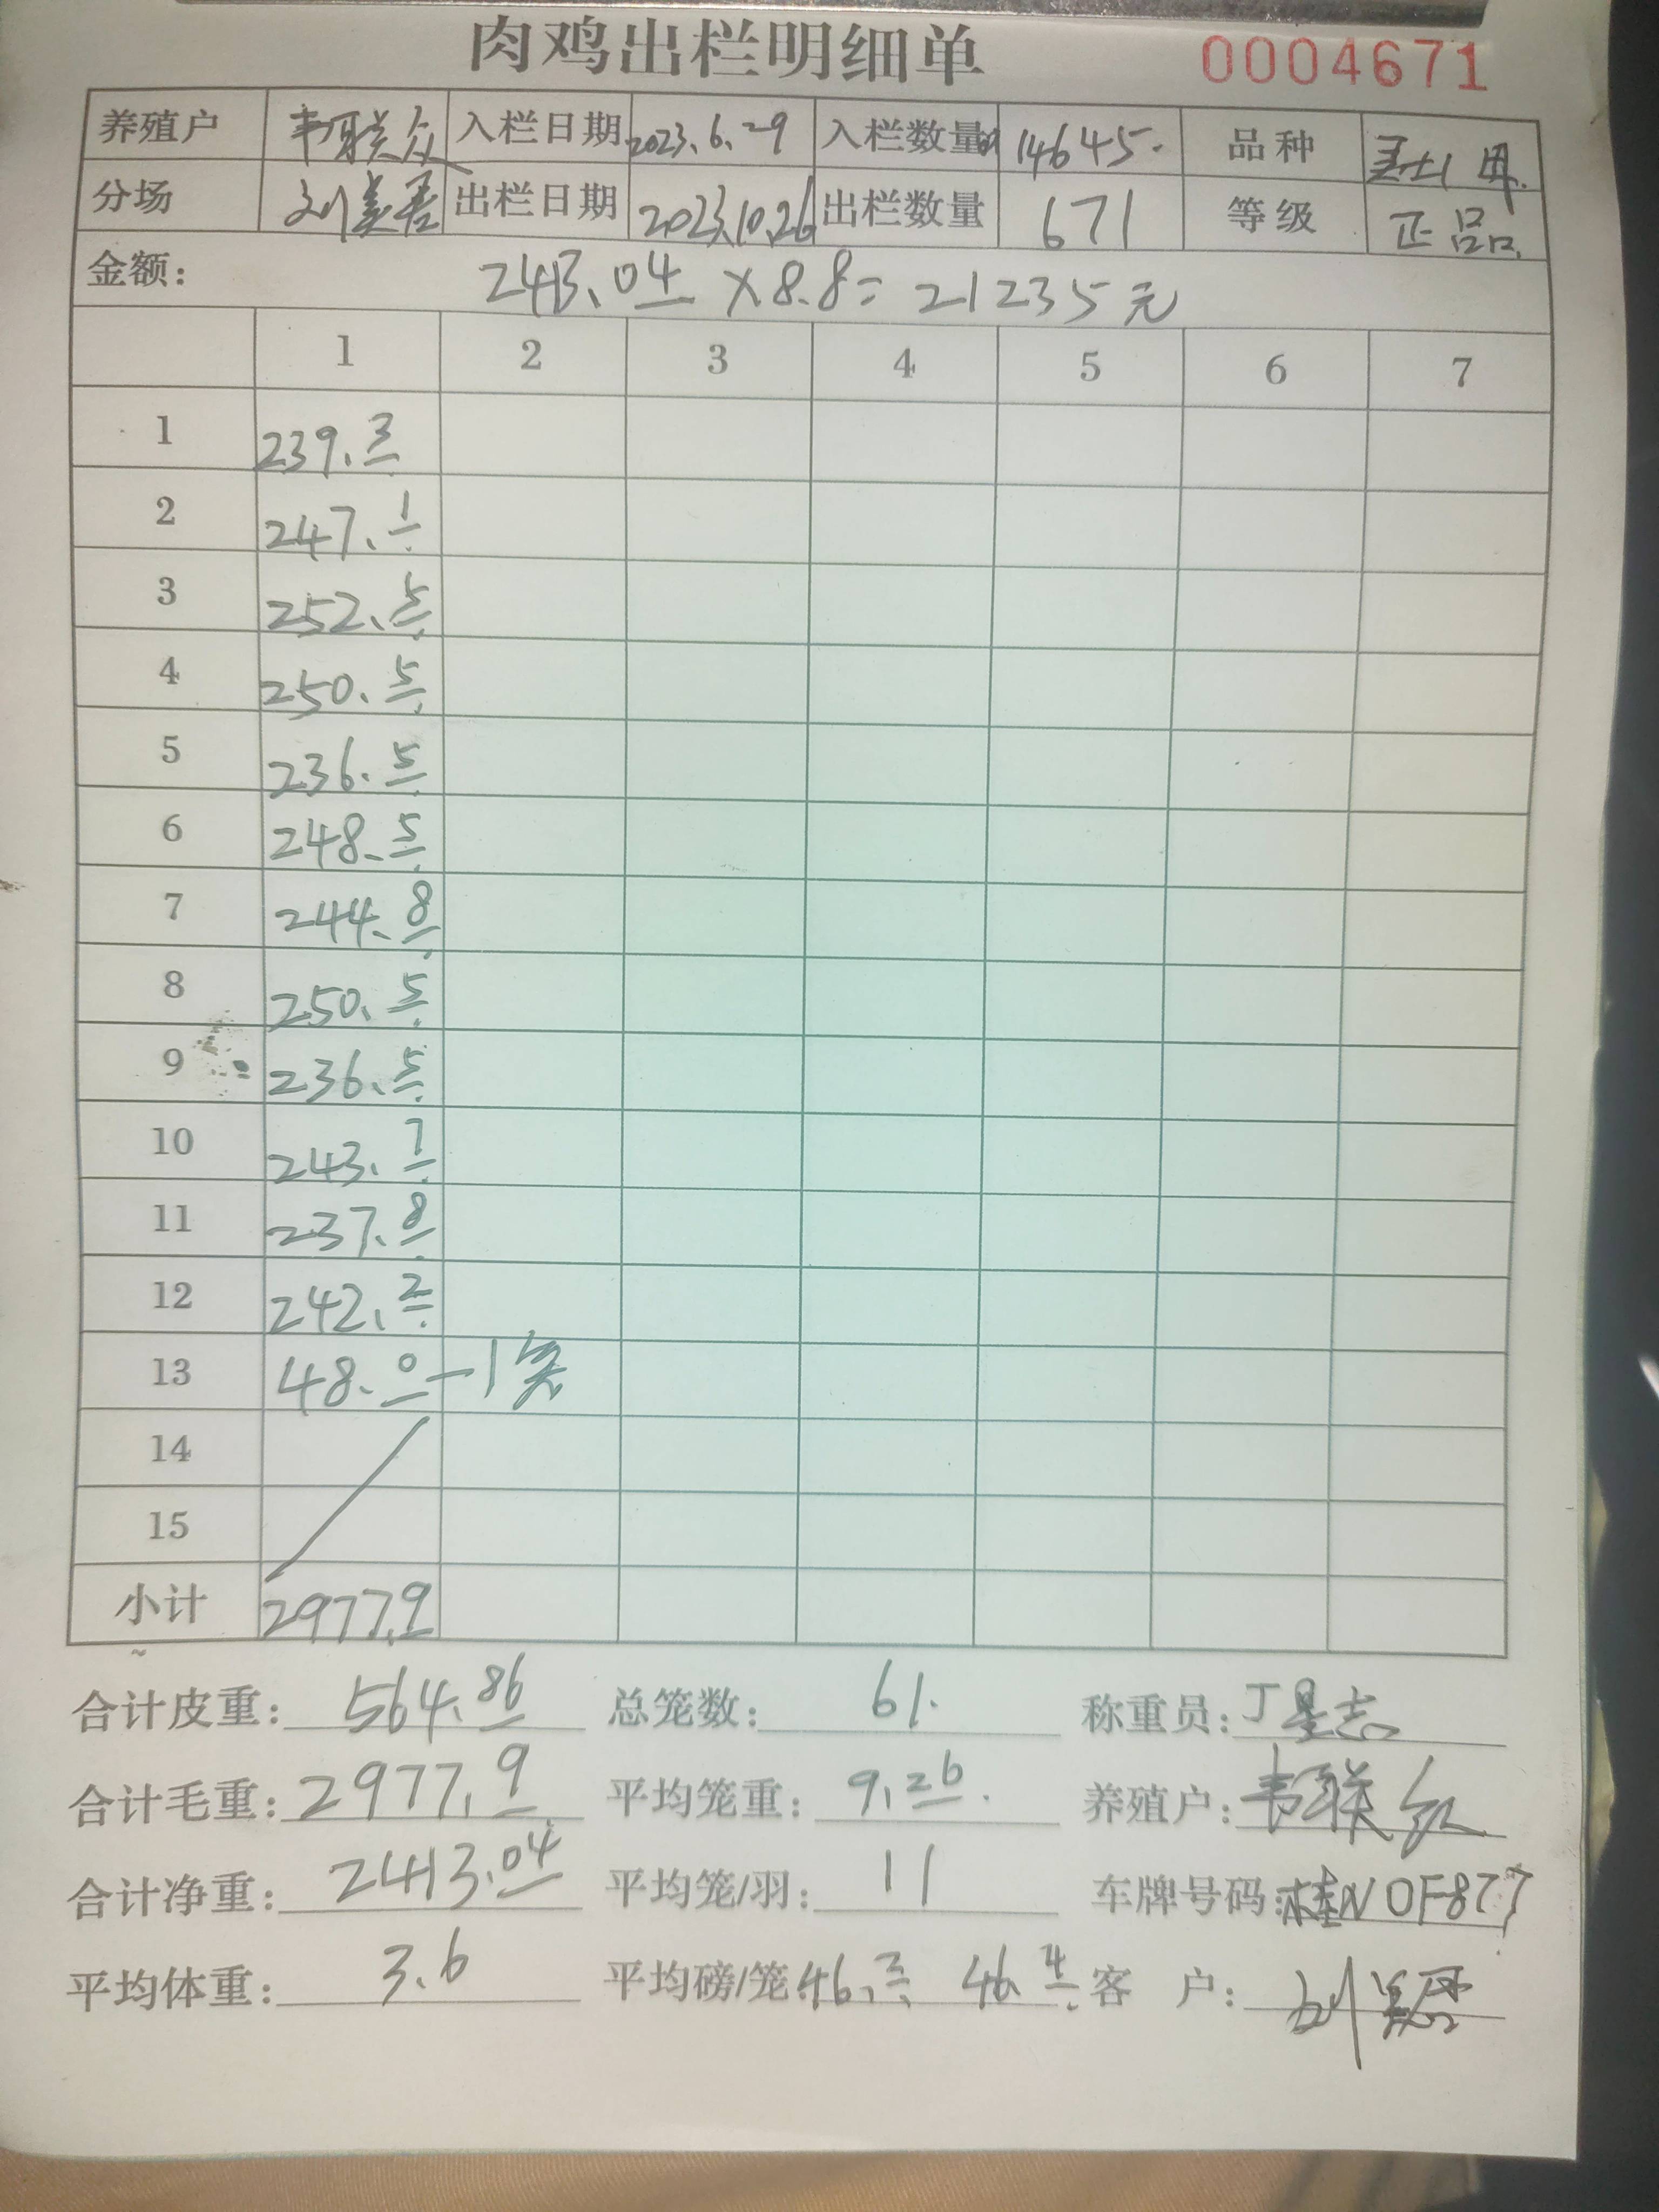 肉鸡出栏明细单 0004671
养殖户 韦联众 入栏日期 2023.6.29 入栏数量 14645. 品种
分场 刘美君 出栏日期 2023.10.26 出栏数量 671 等级 正品.
金额: 2413.04 ×8.8= 21235元
1 2 3 4 5 6 7
1 239.3
2 247.1
3 252.5
4 250.5
5 236.5
6 248.5
7 244.8
8 250.5
9 236.5
10 243.7
11 237.8
12 242.2
13 48.0-1
14
15
小计 2977.9
合计皮重: 564.86 总笼数: 61. 称重员: 丁星志
合计毛重: 2977.9 平均笼重: 9.26. 养殖户: 韦联
合计净重: 2413.04 平均笼/羽: 11 车牌号码: 桂N0F877
平均体重: 3.6 平均磅/笼: 46. 46.4 客 户: 刘